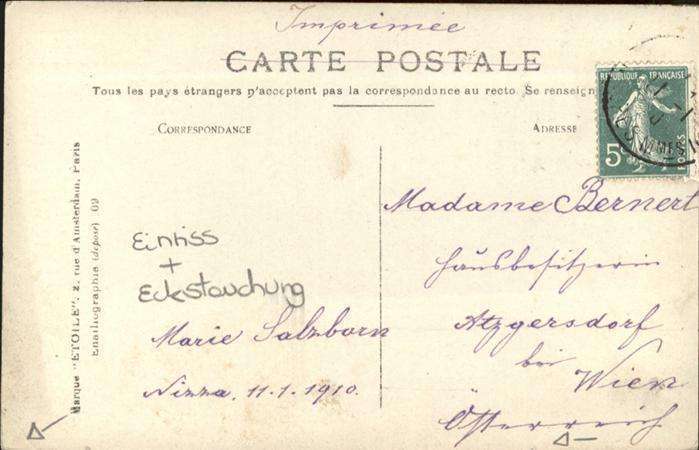 Imprimée
CARTE POSTALE
Tous les pays étrangers n'acceptent pas la correspondance au recto. Se renseign
CORRESPONDANCE
ADRESSE
REPUBLIQUE FRANÇAISE
5
POSTES
Marque "ETOILE", 2, rue d'Amsterdam, Paris
Émailliographie (déposé) 69
Einriss
+
Eckstauchung
Marie Salzborn
Nizza, 11.1.1910.
Madame Bernert
Hausbesitzerin
Atzgersdorf
bei Wien
Österreich